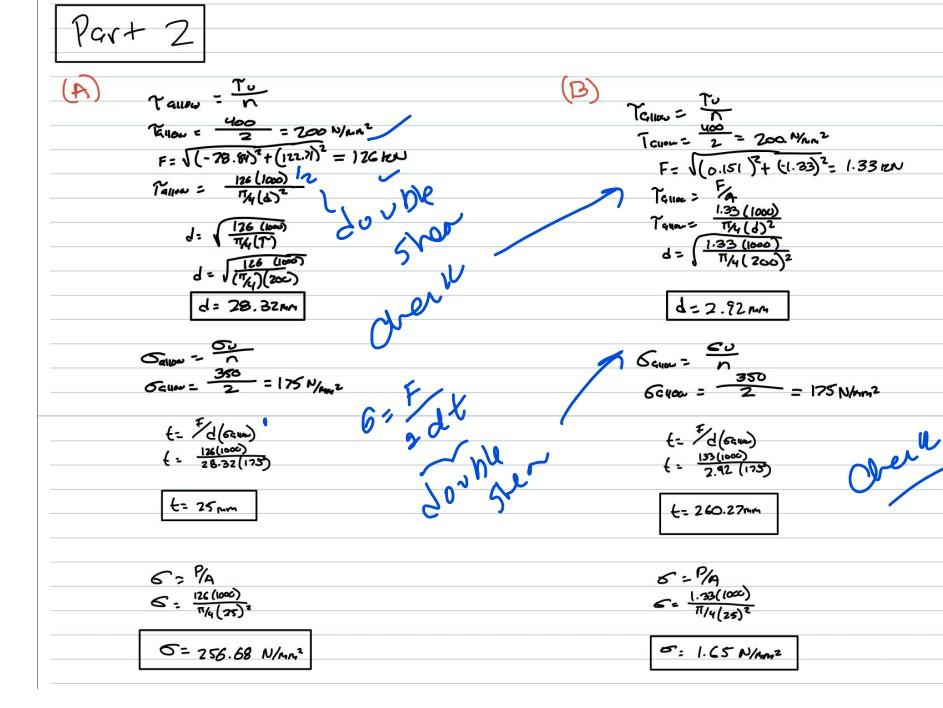 Part 2
(A)
τallow = τu/n
τallow = 400/2 = 200 N/mm²
F = √(-28.84)² + (122.71)² = 126 kN
τallow = 126(1000)/π/4(d)² 1/2
double
shear
d = √126(1000)/π/4(τ)
d = √126(1000)/(π/4)(200)
d = 28.32mm
check
σallow = σu/n
σallow = 350/2 = 175 N/mm²
t = F/d(σallow)
t = 126(1000)/28.32(175)
t = 25mm
σ = F/2dt
double
shear
σ = P/A
σ = 126(1000)/π/4(25)²
σ = 256.68 N/mm²
(B)
τallow = τu/n
τallow = 400/2 = 200 N/mm²
F = √(0.151)² + (-1.33)² = 1.33 kN
τallow = F/A
τallow = 1.33(1000)/π/4(d)²
d = √1.33(1000)/π/4(200)²
d = 2.92mm
σallow = σu/n
σallow = 350/2 = 175 N/mm²
t = F/d(σallow)
t = 133(1000)/2.92(175)
t = 260.27mm
check
σ = P/A
σ = 1.33(1000)/π/4(25)²
σ = 1.65 N/mm²